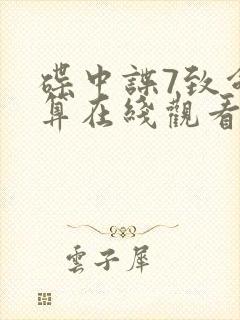 碟中諜7致命
算在綫觀看
雲子犀